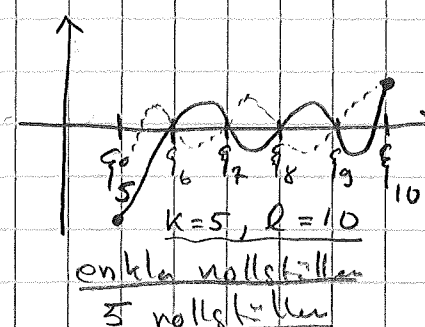 ξ₅ ξ₆ ξ₇ ξ₈ ξ₉ ξ₁₀
k=5, l=10
enkla nollställen
5 nollställen